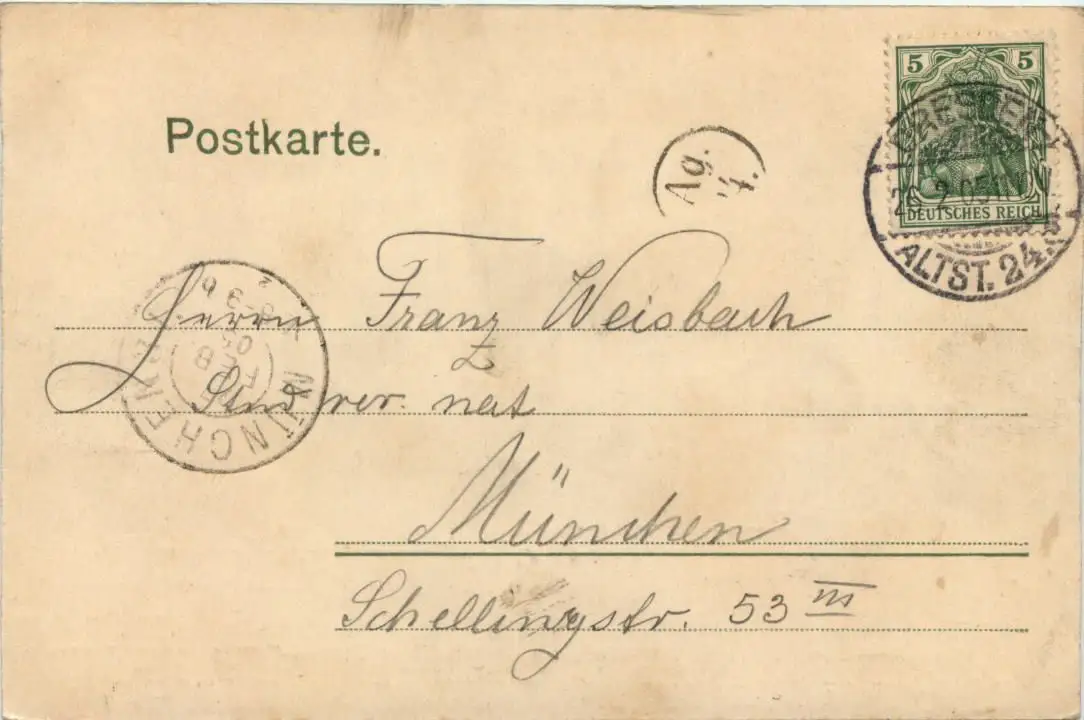 5 5
DEUTSCHES REICH
DRESDEN
26.2.05
ALTST. 24.
Postkarte.
Ag. 4.
Herrn Franz Weisbach
Stud. rer. nat
München
Schellingstr. 53 III
MÜNCHEN
FEB
8-9